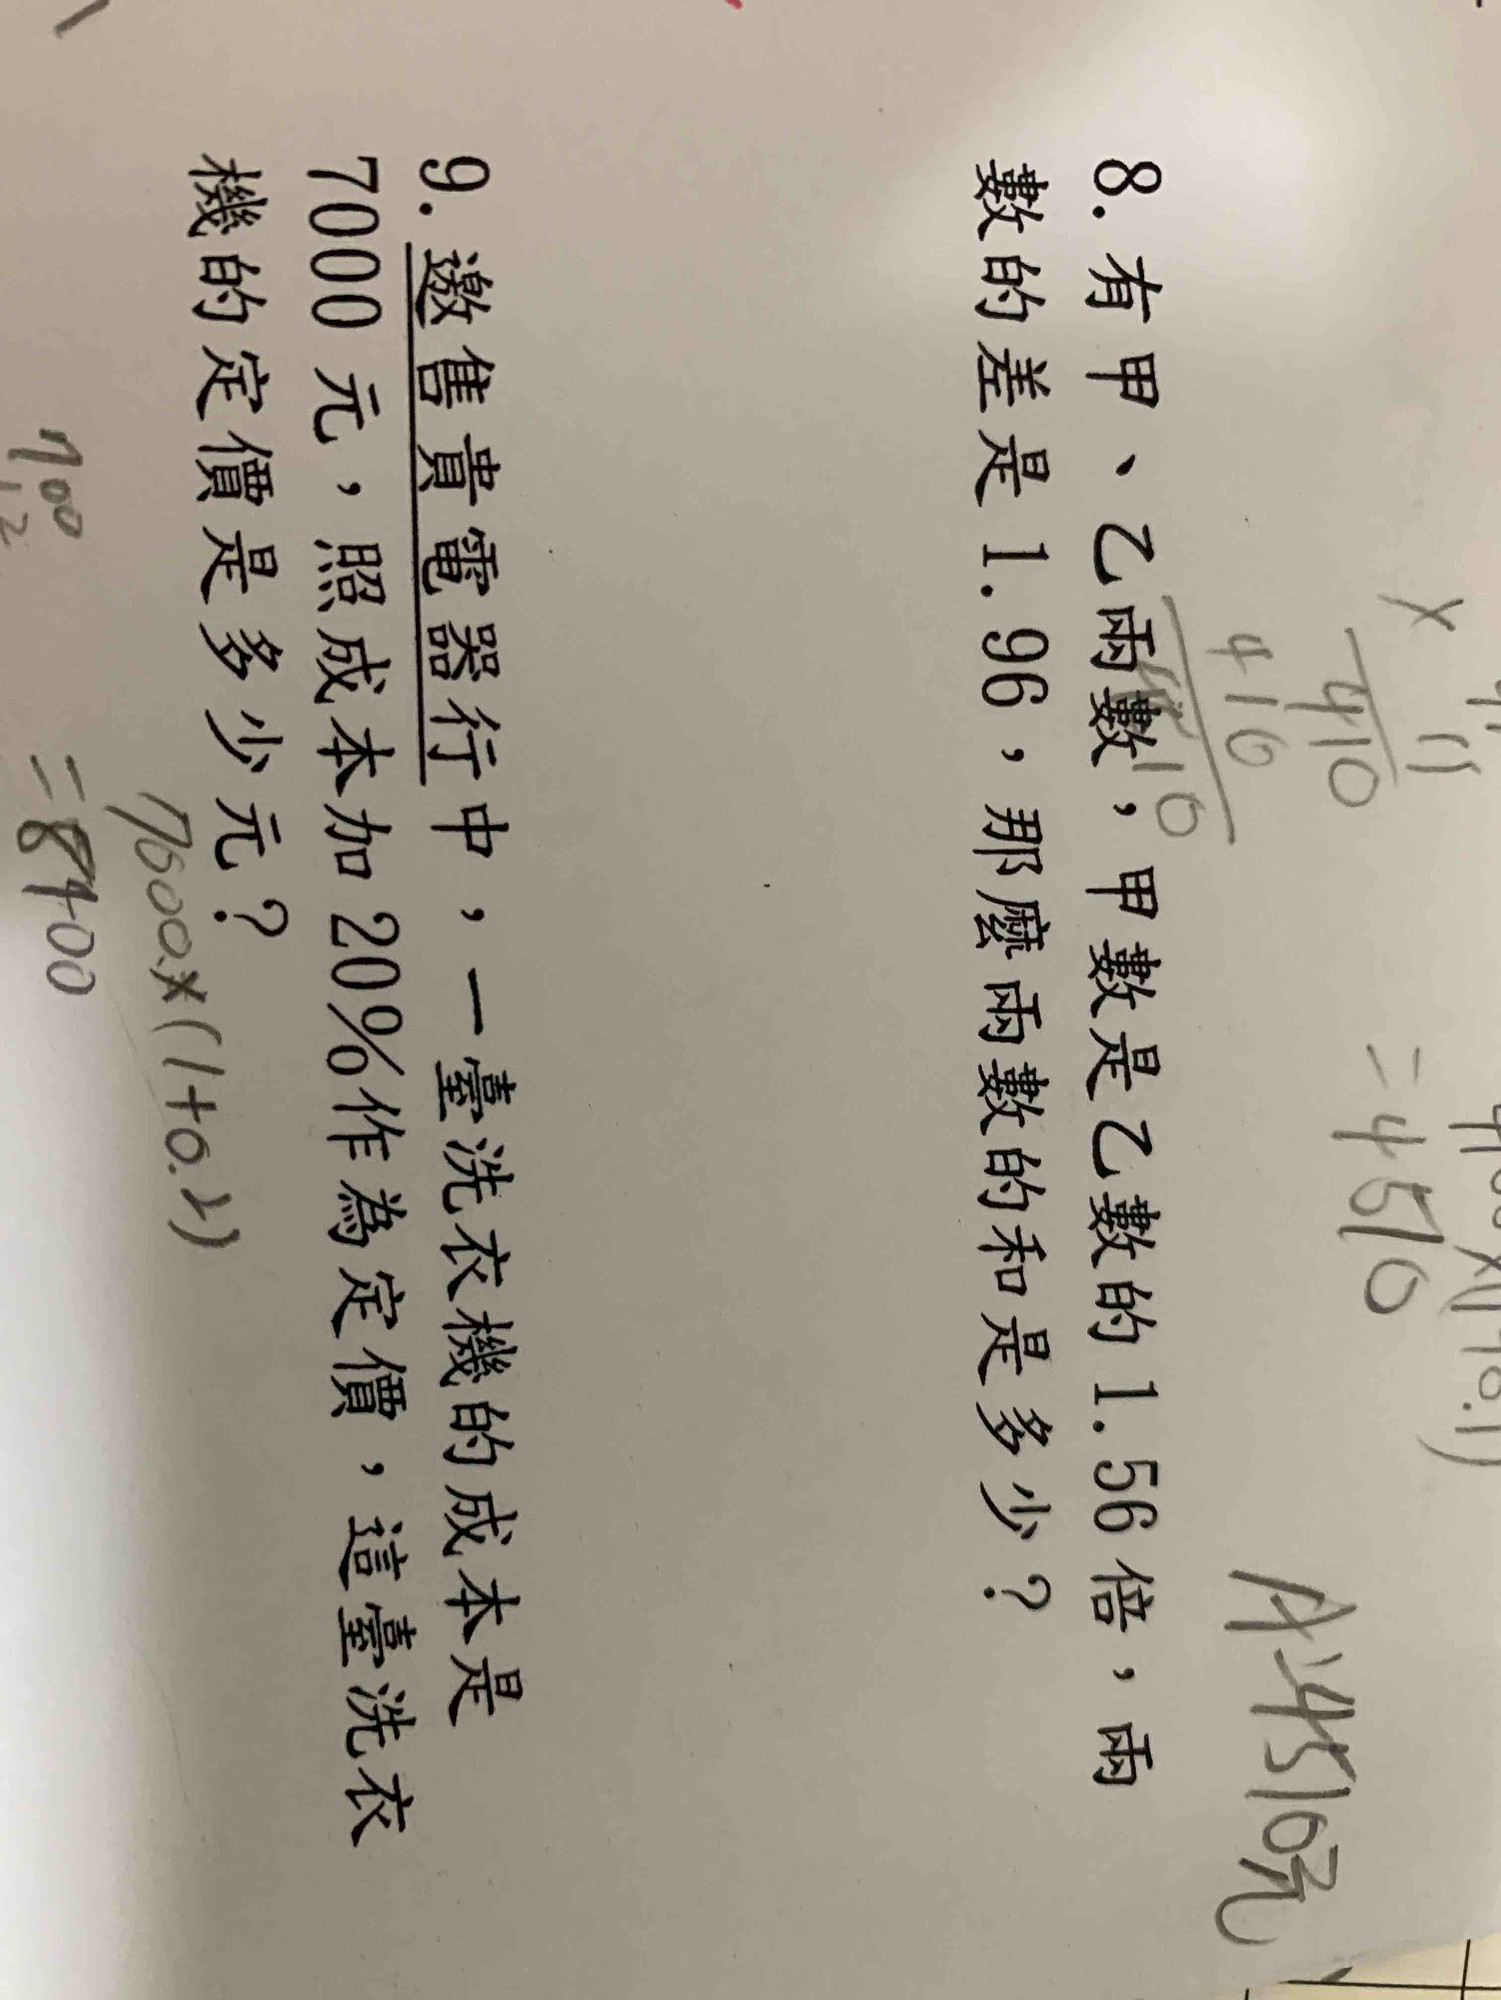 11
×
410
410
4510
=4510
A:4510元
8. 有甲、乙兩數，甲數是乙數的1.56倍，兩
數的差是1.96，那麼兩數的和是多少？
9. 邀售貴電器行中，一臺洗衣機的成本是
7000元，照成本加20%作為定價，這臺洗衣
機的定價是多少元？
7000×(1+0.2)
=8400
700
12